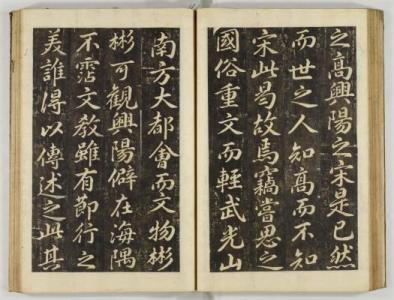 之高興陽之宋是已然
而世之人知高而不知
宋此曷故焉竊嘗思之
國俗重文而輕武光山
南方大都會而文物彬
彬可觀興陽僻在海隅
不霑文教雖有節行之
美誰得以傳述之此其